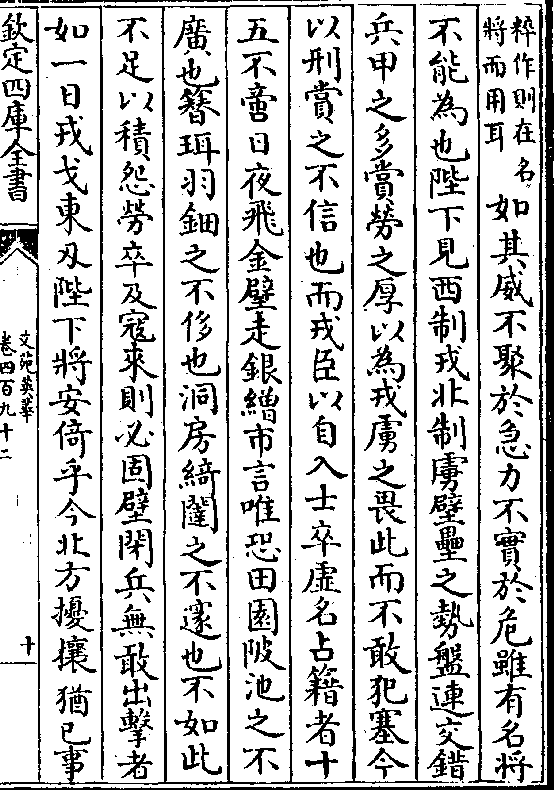 粹作則在名
將而用耳
如其威不聚於急力不實於危雖有名將
不能為也陛下見西制戎北制虜壁壘之勢盤連交錯
兵甲之多賞勞之厚以為戎虜之畏此而不敢犯塞今
以刑賞之不信也而戎臣以自入士卒虛名占籍者十
五不啻日夜飛金壁走銀繒市言唯恐田園陂池之不
廣也簪珥羽鈿之不侈也洞房綺闥之不邃也不如此
不足以積怨勞卒及寇來則必固壁閉兵無敢出擊者
如一日戎戈東刄陛下將安倚乎今北方擾攘猶已事
欽定四庫全書
文苑英華
卷四百九十二
十